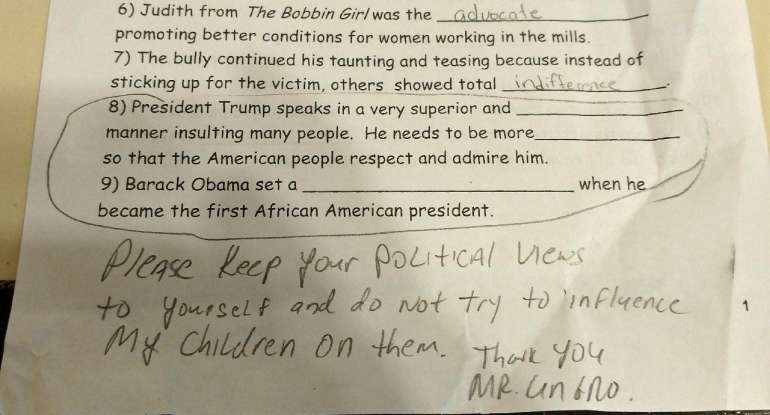 6) Judith from The Bobbin Girl was the advocate
promoting better conditions for women working in the mills.
7) The bully continued his taunting and teasing because instead of
sticking up for the victim, others showed total indifference.
8) President Trump speaks in a very superior and ____________
manner insulting many people. He needs to be more____________
so that the American people respect and admire him.
9) Barack Obama set a ____________ when he
became the first African American president.
Please keep your political views
to yourself and do not try to influence
My Children on them. Thank you
MR.
1